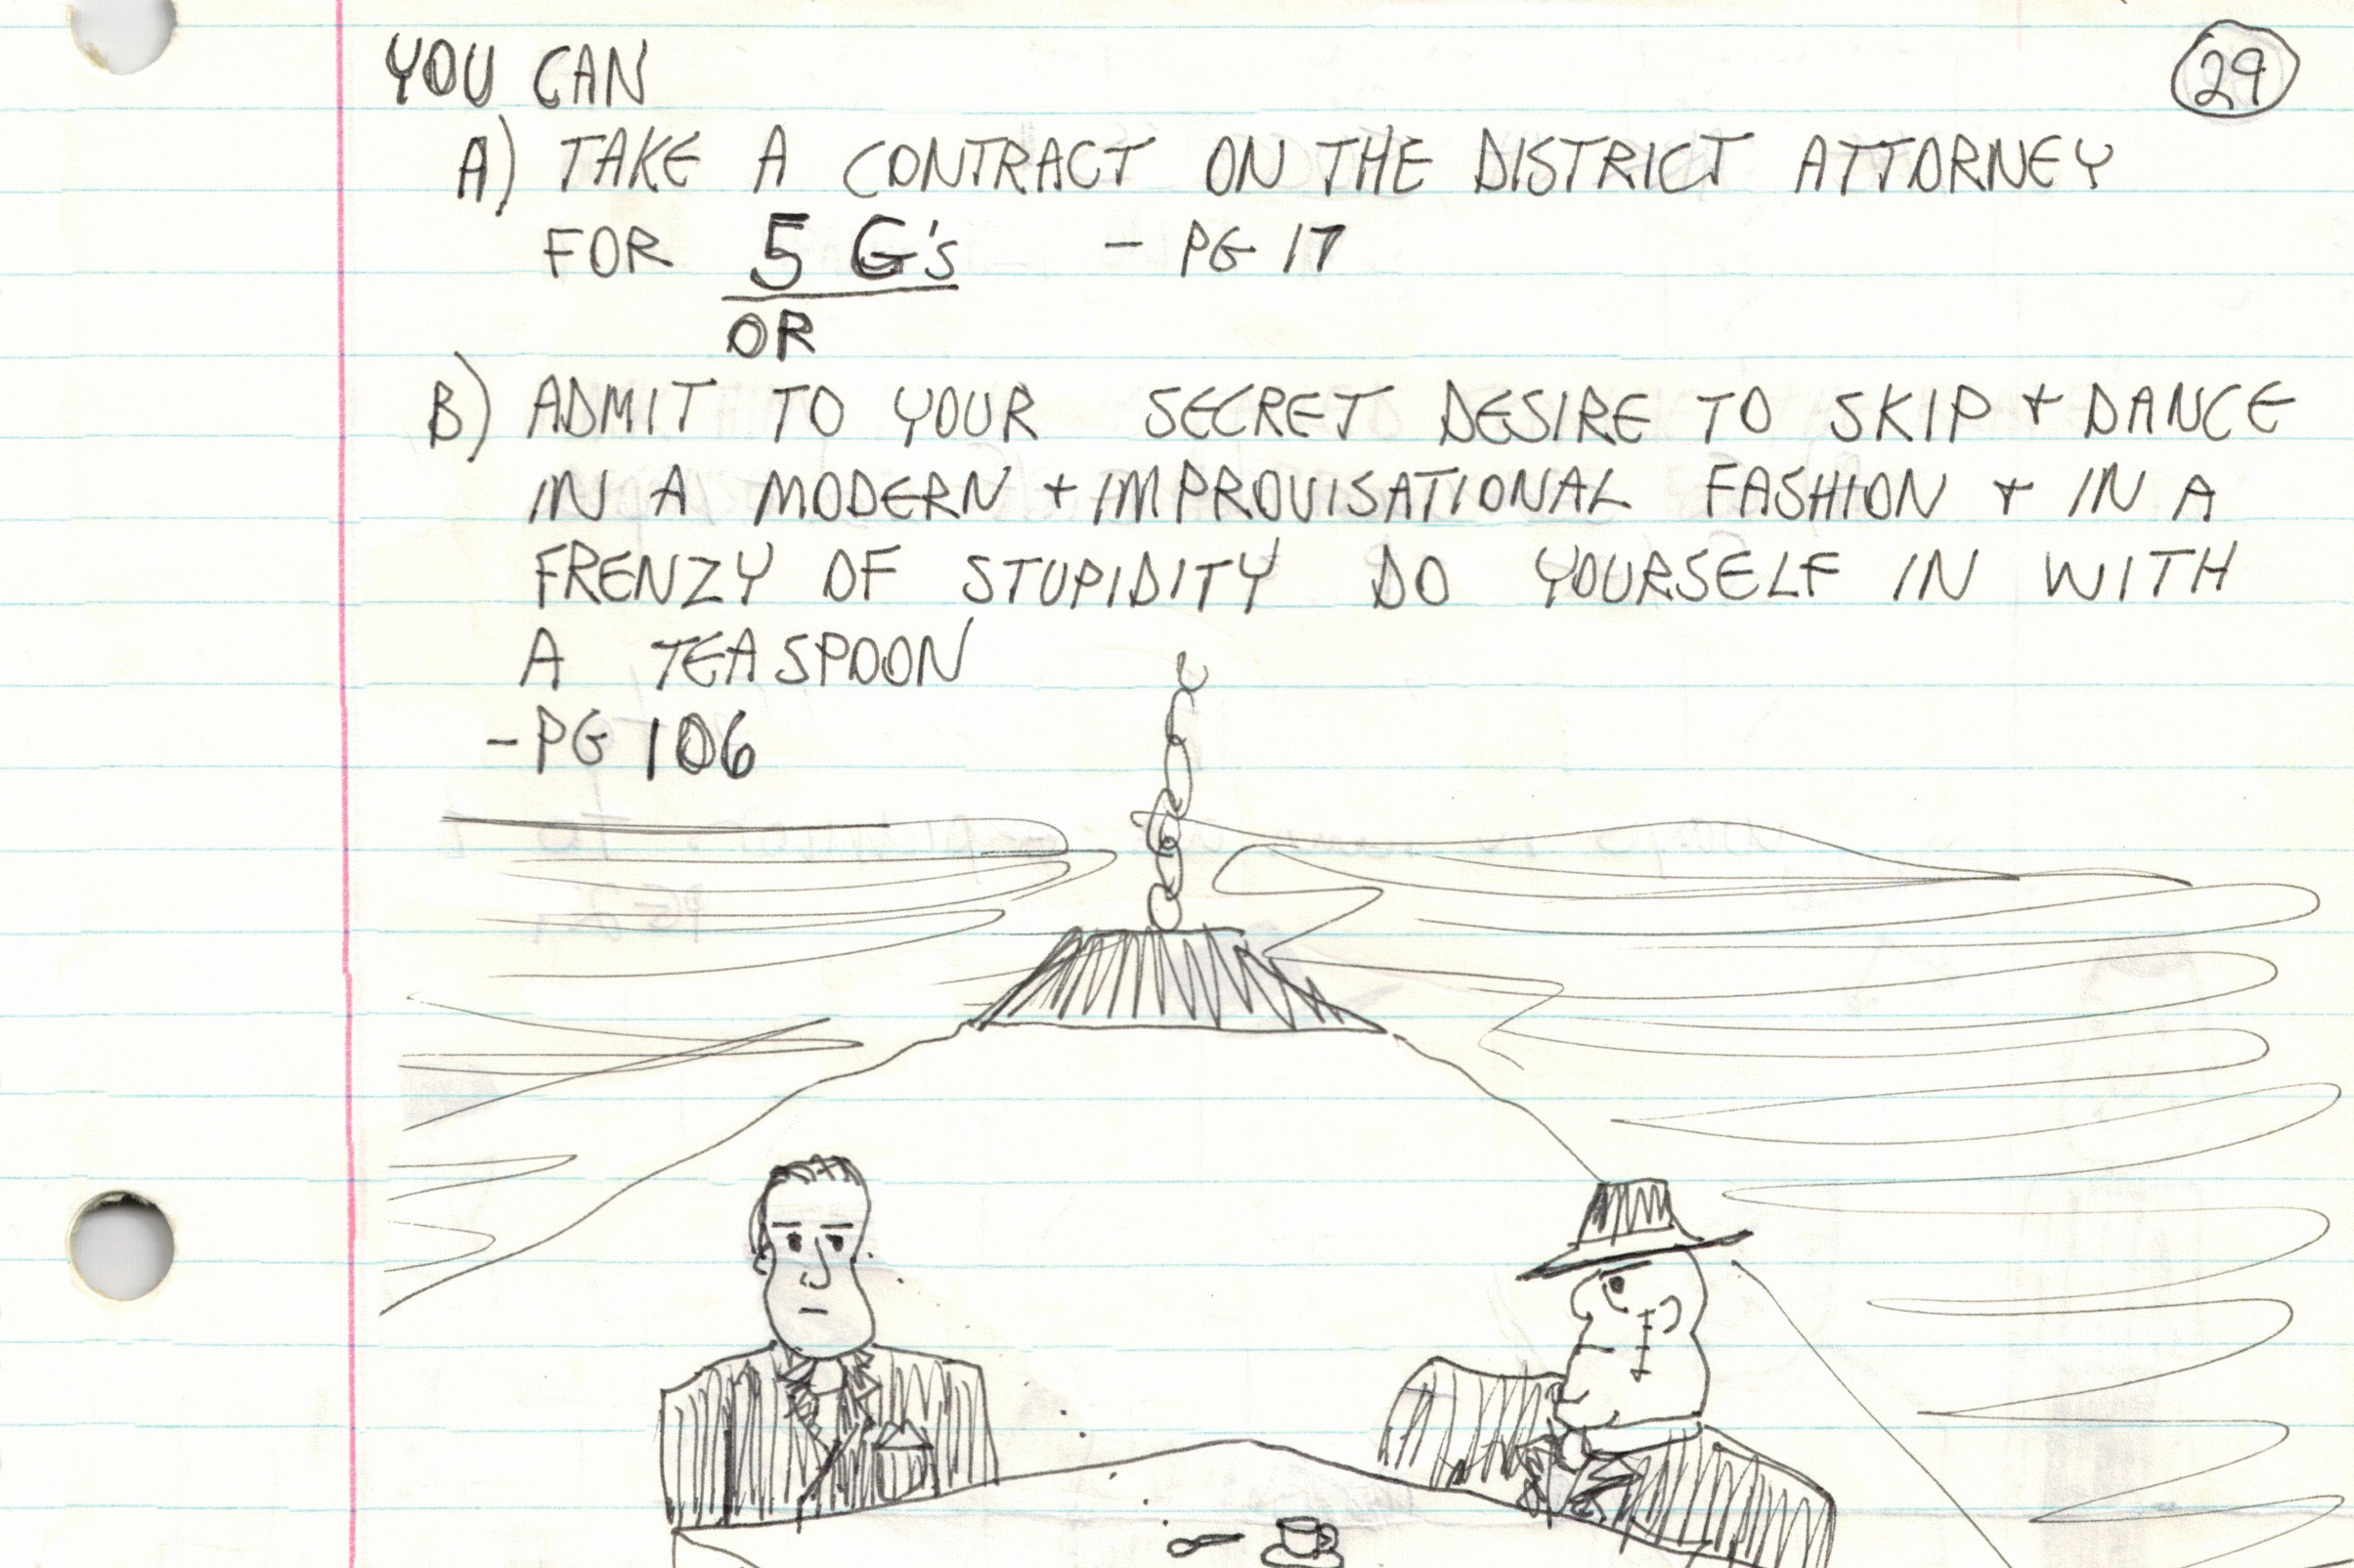 29
YOU CAN
A) TAKE A CONTRACT ON THE DISTRICT ATTORNEY
FOR 5 G's - PG 17
OR
B) ADMIT TO YOUR SECRET DESIRE TO SKIP + DANCE
IN A MODERN + IMPROVISATIONAL FASHION + IN A
FRENZY OF STUPIDITY DO YOURSELF IN WITH
A TEASPOON
- PG 106